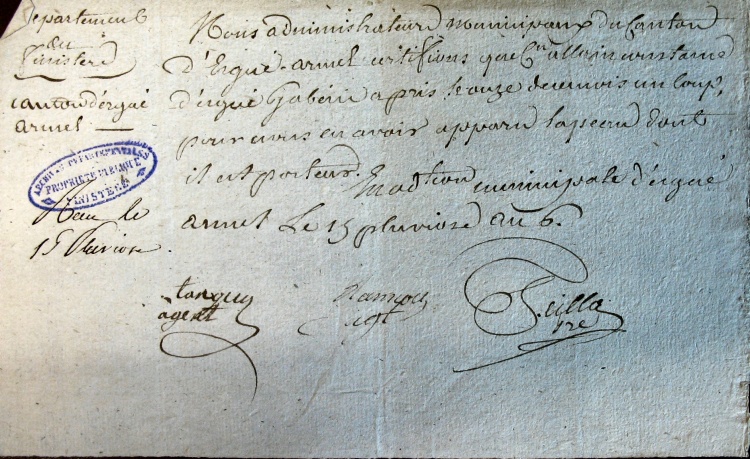 Departement
du
finistere
canton d'ergué
armel
ARCHIVES DÉPARTEMENTALES
PROPRIÉTÉ PUBLIQUE
FINISTÈRE
le
15 Pluviose
Nous administrateurs municipaux du Canton
d'Ergué-armel certifions que Cen allain constame
d'ergué Gaberic a pris le onze de ce mois un loup,
pour nous en avoir apparu la peau dont
il est porteur. En adtion municipale d'ergué
armel Le 15 pluviose an 6.
tanguy
agent
agt